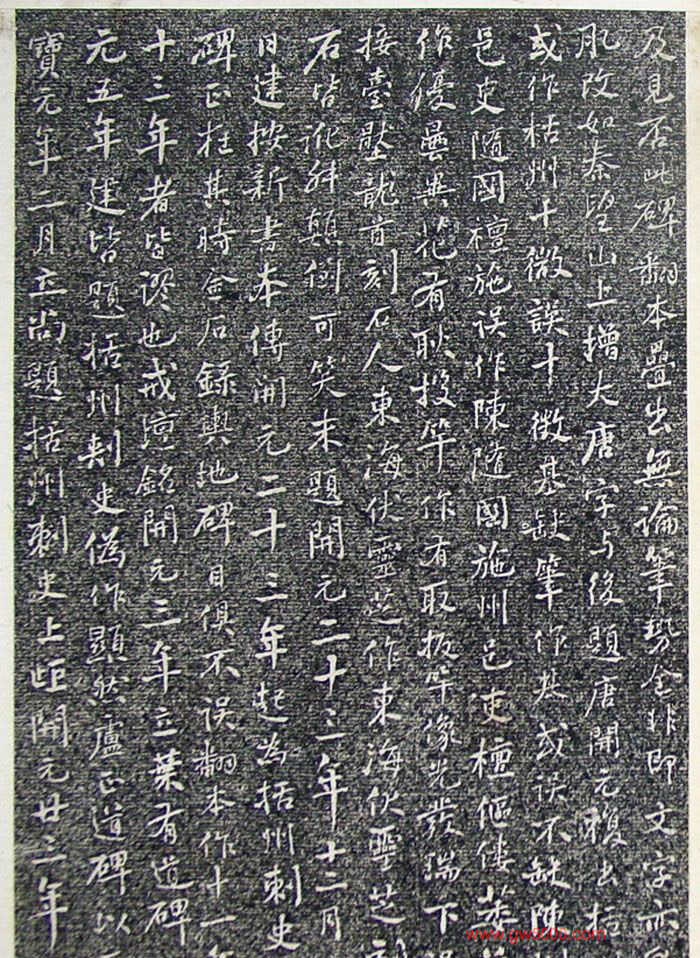 及見否此碑翻本疊出無論筆勢全非即文字亦
夙改如秦望山上增大唐字与後題唐開元複出括
或作枯州十微誤十徵基缺筆作其或誤不缺陳
邑吏隨國檀施误作陳隨國施州邑吏檀傴僂
作優曇與花有耿投竿作有取扳竿像光發瑞下
接臺壓龍首刻石人東海伏靈芝作東海伏靈芝刻
石皆訛舛顛倒可笑末題開元二十三年十二月
日建按新書本傳開元二十三年起为括州刺史
碑正在其時金石錄輿地碑目俱不误翻本作十一年
十三年者皆謬也戒壇銘開元三年立葉有道碑
元五年建皆題括州刺史偽作顯然盧正道碑以
寶元年二月立尚題括州刺史上距開元廿三年
www.gw3000.com